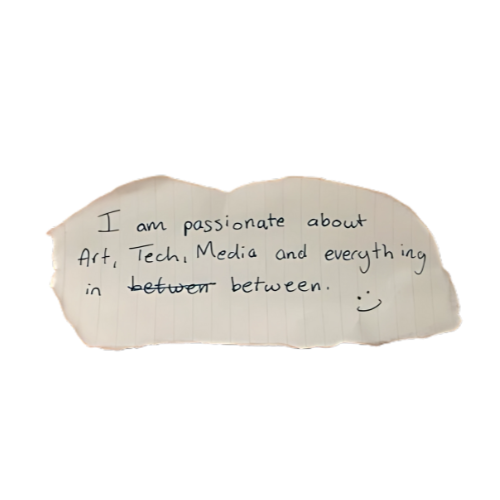 I am passionate about
Art, Tech, Media and everything
in ~~betwen~~ between. :)